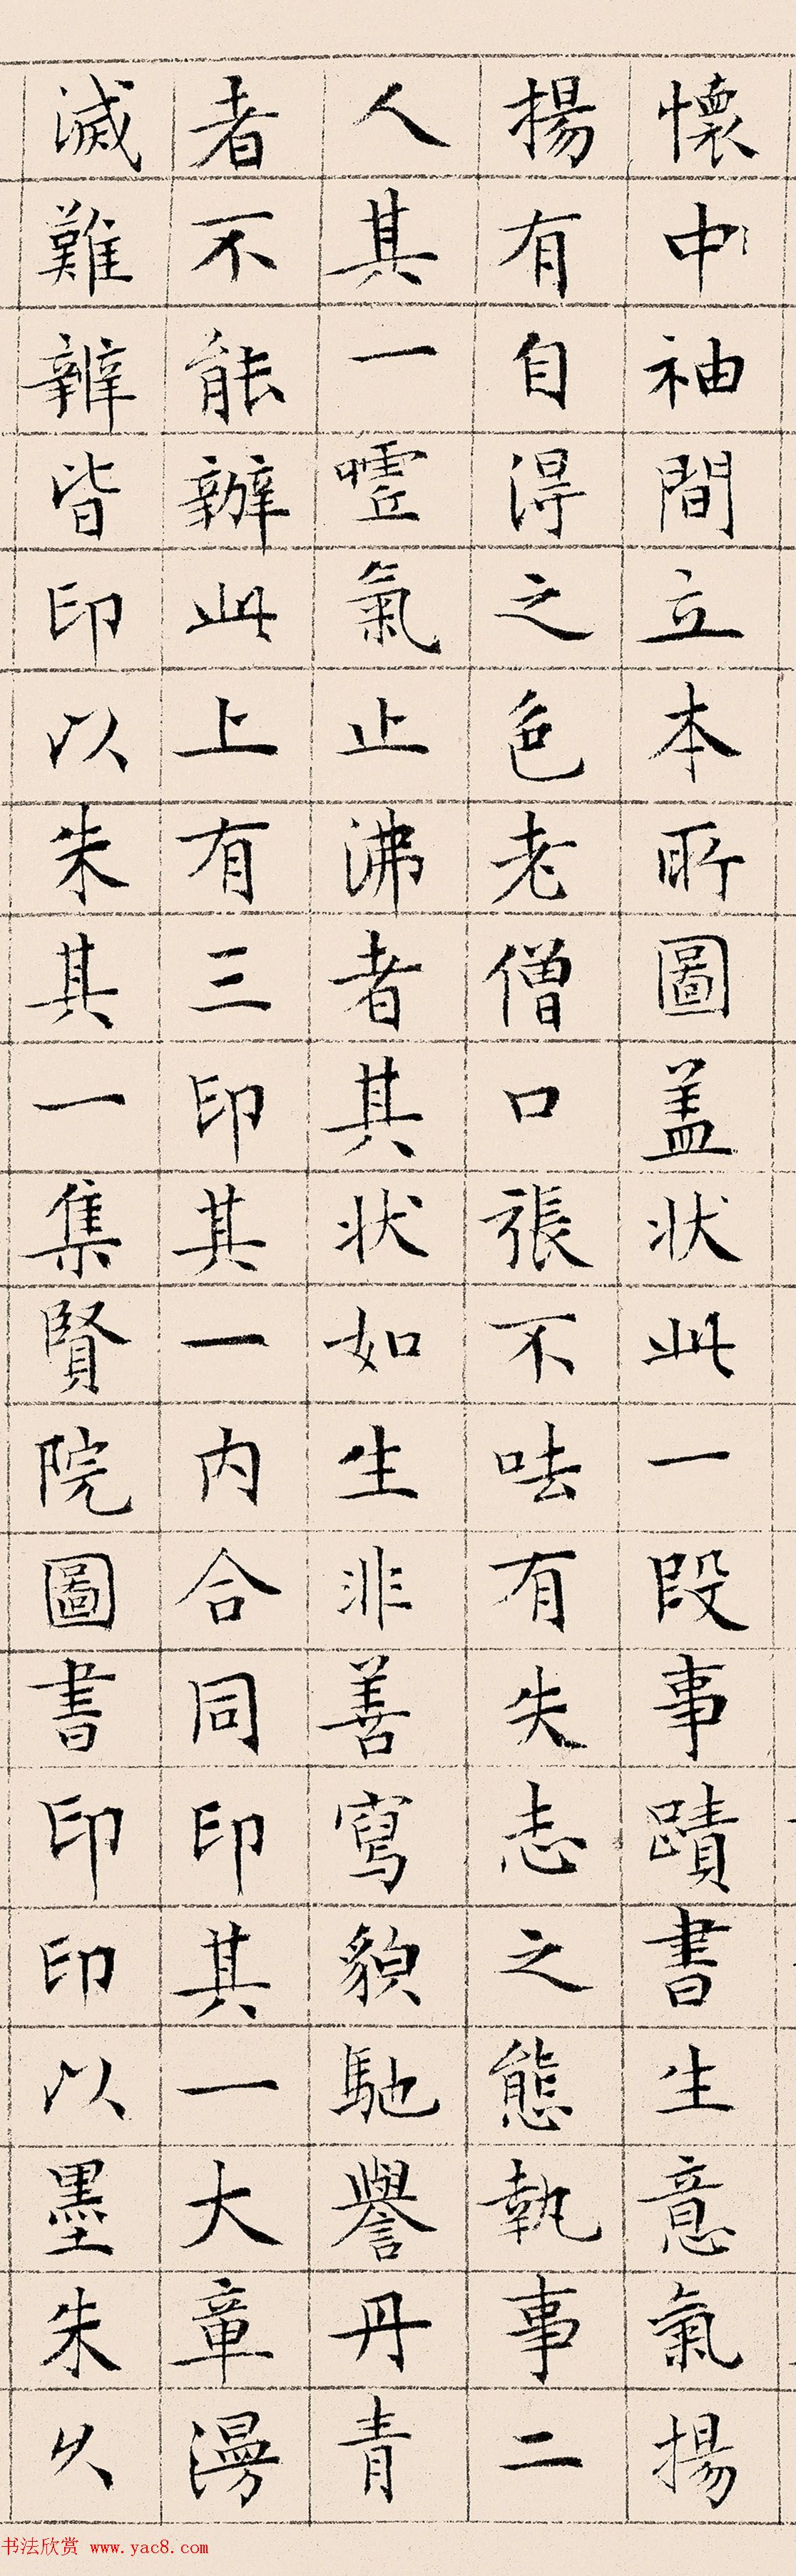 懷中袖間立本所圖盖状此一段事蹟書生意氣揚
揚有自得之色老僧口張不呿有失志之態執事二
人其一噓氣止沸者其状如生非善寫貌馳譽丹青
者不能辦此上有三印其一内合同印其一大章漫
滅難辨皆印以朱其一集賢院圖書印印以墨朱久
书法欣赏 www.yac8.com